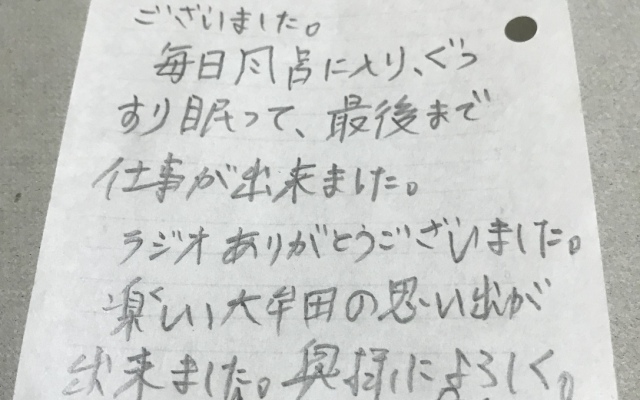 ございました。
毎日風呂に入り、ぐっ
すり眠って、最後まで
仕事が出来ました。
ラジオありがとうございました。
楽しい大牟田の思い出が
出来ました。奥様によろしく。